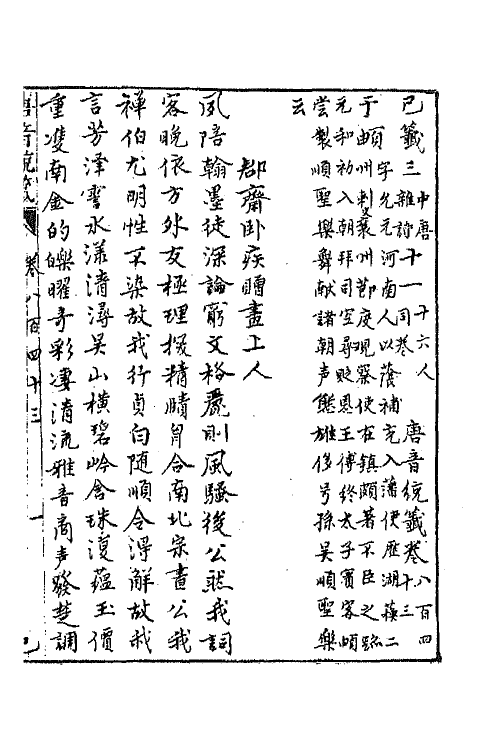 已籤三 中唐十六人 雜詩十一同卷 唐音統籤卷八百四十三
于頔 字允元河南人以蔭補充入藩使歷湖蘇二
州刺史襄州節度現察使在鎮頗著不臣之跡
元和初入朝拜司空尋貶恩王傅終太子賓客頔
嘗製順聖樂舞献諸朝声態雄侈号孫吳順聖樂
云
郡齋卧疾贈晝上人
夙陪翰墨徒深論窮文格麗則風騷後公然我詞
客晚依方外友極理探精賾脗合南北宗晝公我
禅伯尤明性不染故我行貞白随順令得解故我
言芳澤霅水漾清潯吳山橫碧岑含珠復蘊玉價
重雙南金的皪曜奇彩凄清流雅音商声發楚調
唐音統籤 卷八百四十三 一 已